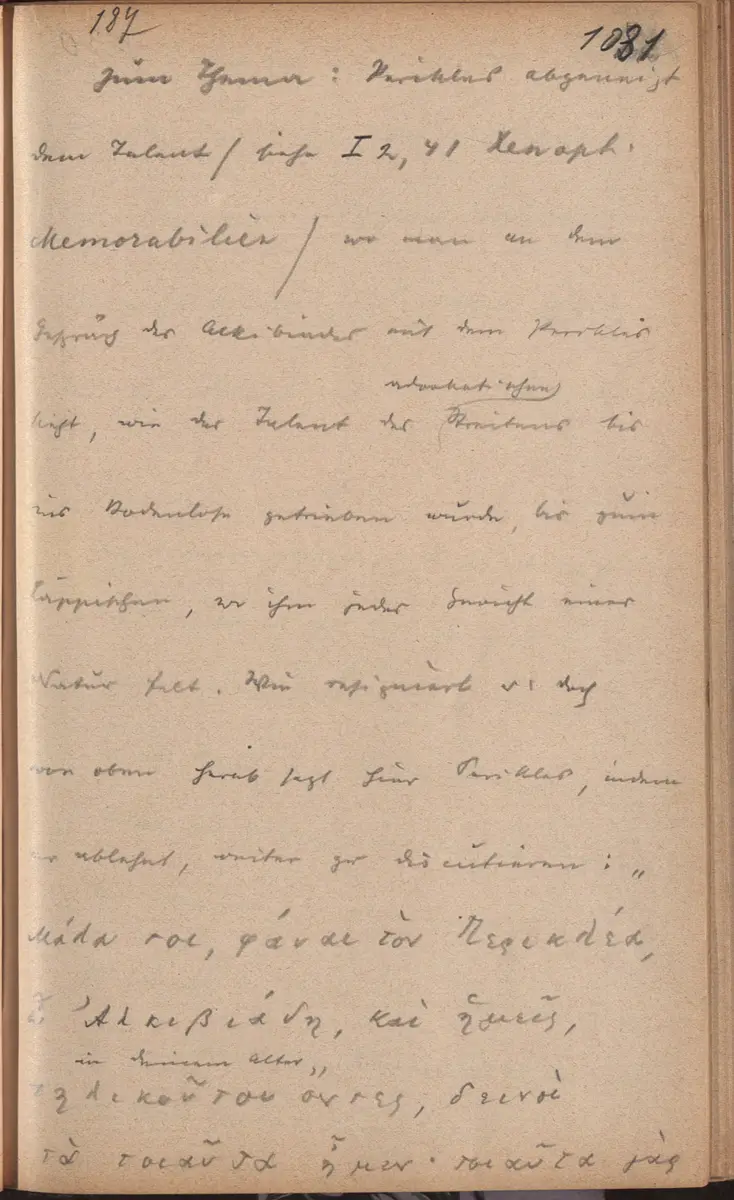 187
1081
Zum Thema: Perikles abgeneigt
dem Talent / siehe I 2, 41 Xenoph.
Memorabilien / wo man an dem
Gespräch des Alkibiades mit dem Perikles
sieht, wie das Talent des
advokatischen
Streitens bis
ins Bodenlose getrieben wurde, bis zum
Läppischen, wo ihm jedes Gewicht einer
Natur felt. Wie resigniert u: doch
von oben herab sagt hier Perikles, indem
er ablehnt, weiter zu discutieren: „
Μάλα τοι, φάναι τὸν Περικλέα,
ὦ Ἀλκιβιάδη, καὶ ἡμεῖς,
in deinem Alter „
τηλικοῦτοι ὄντες, δεινοὶ
τὰ τοιαῦτα ἦμεν· τοιαῦτα γὰρ